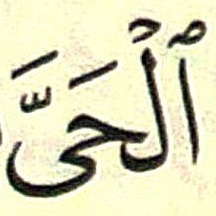 ٱلۡحَىَّ